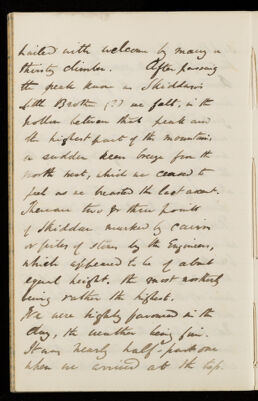 hailed with welcome by many a
thirsty climber. After passing
the peak known as Skiddaw's
Little Brother (?) we felt, in the
hollow between that peak and
the highest part of the mountain,
a sudden keen breeze from the
north west, which we ceased to
feel as we breasted the last ascent.
There are two or three points
of Skiddaw marked by cairns
or piles of stones by the Engineers,
which appeared to be of about
equal height, the most northerly
being rather the highest.
We were highly favoured in the
day, the weather being fine.
It was nearly half-past one
when we arrived at the top.